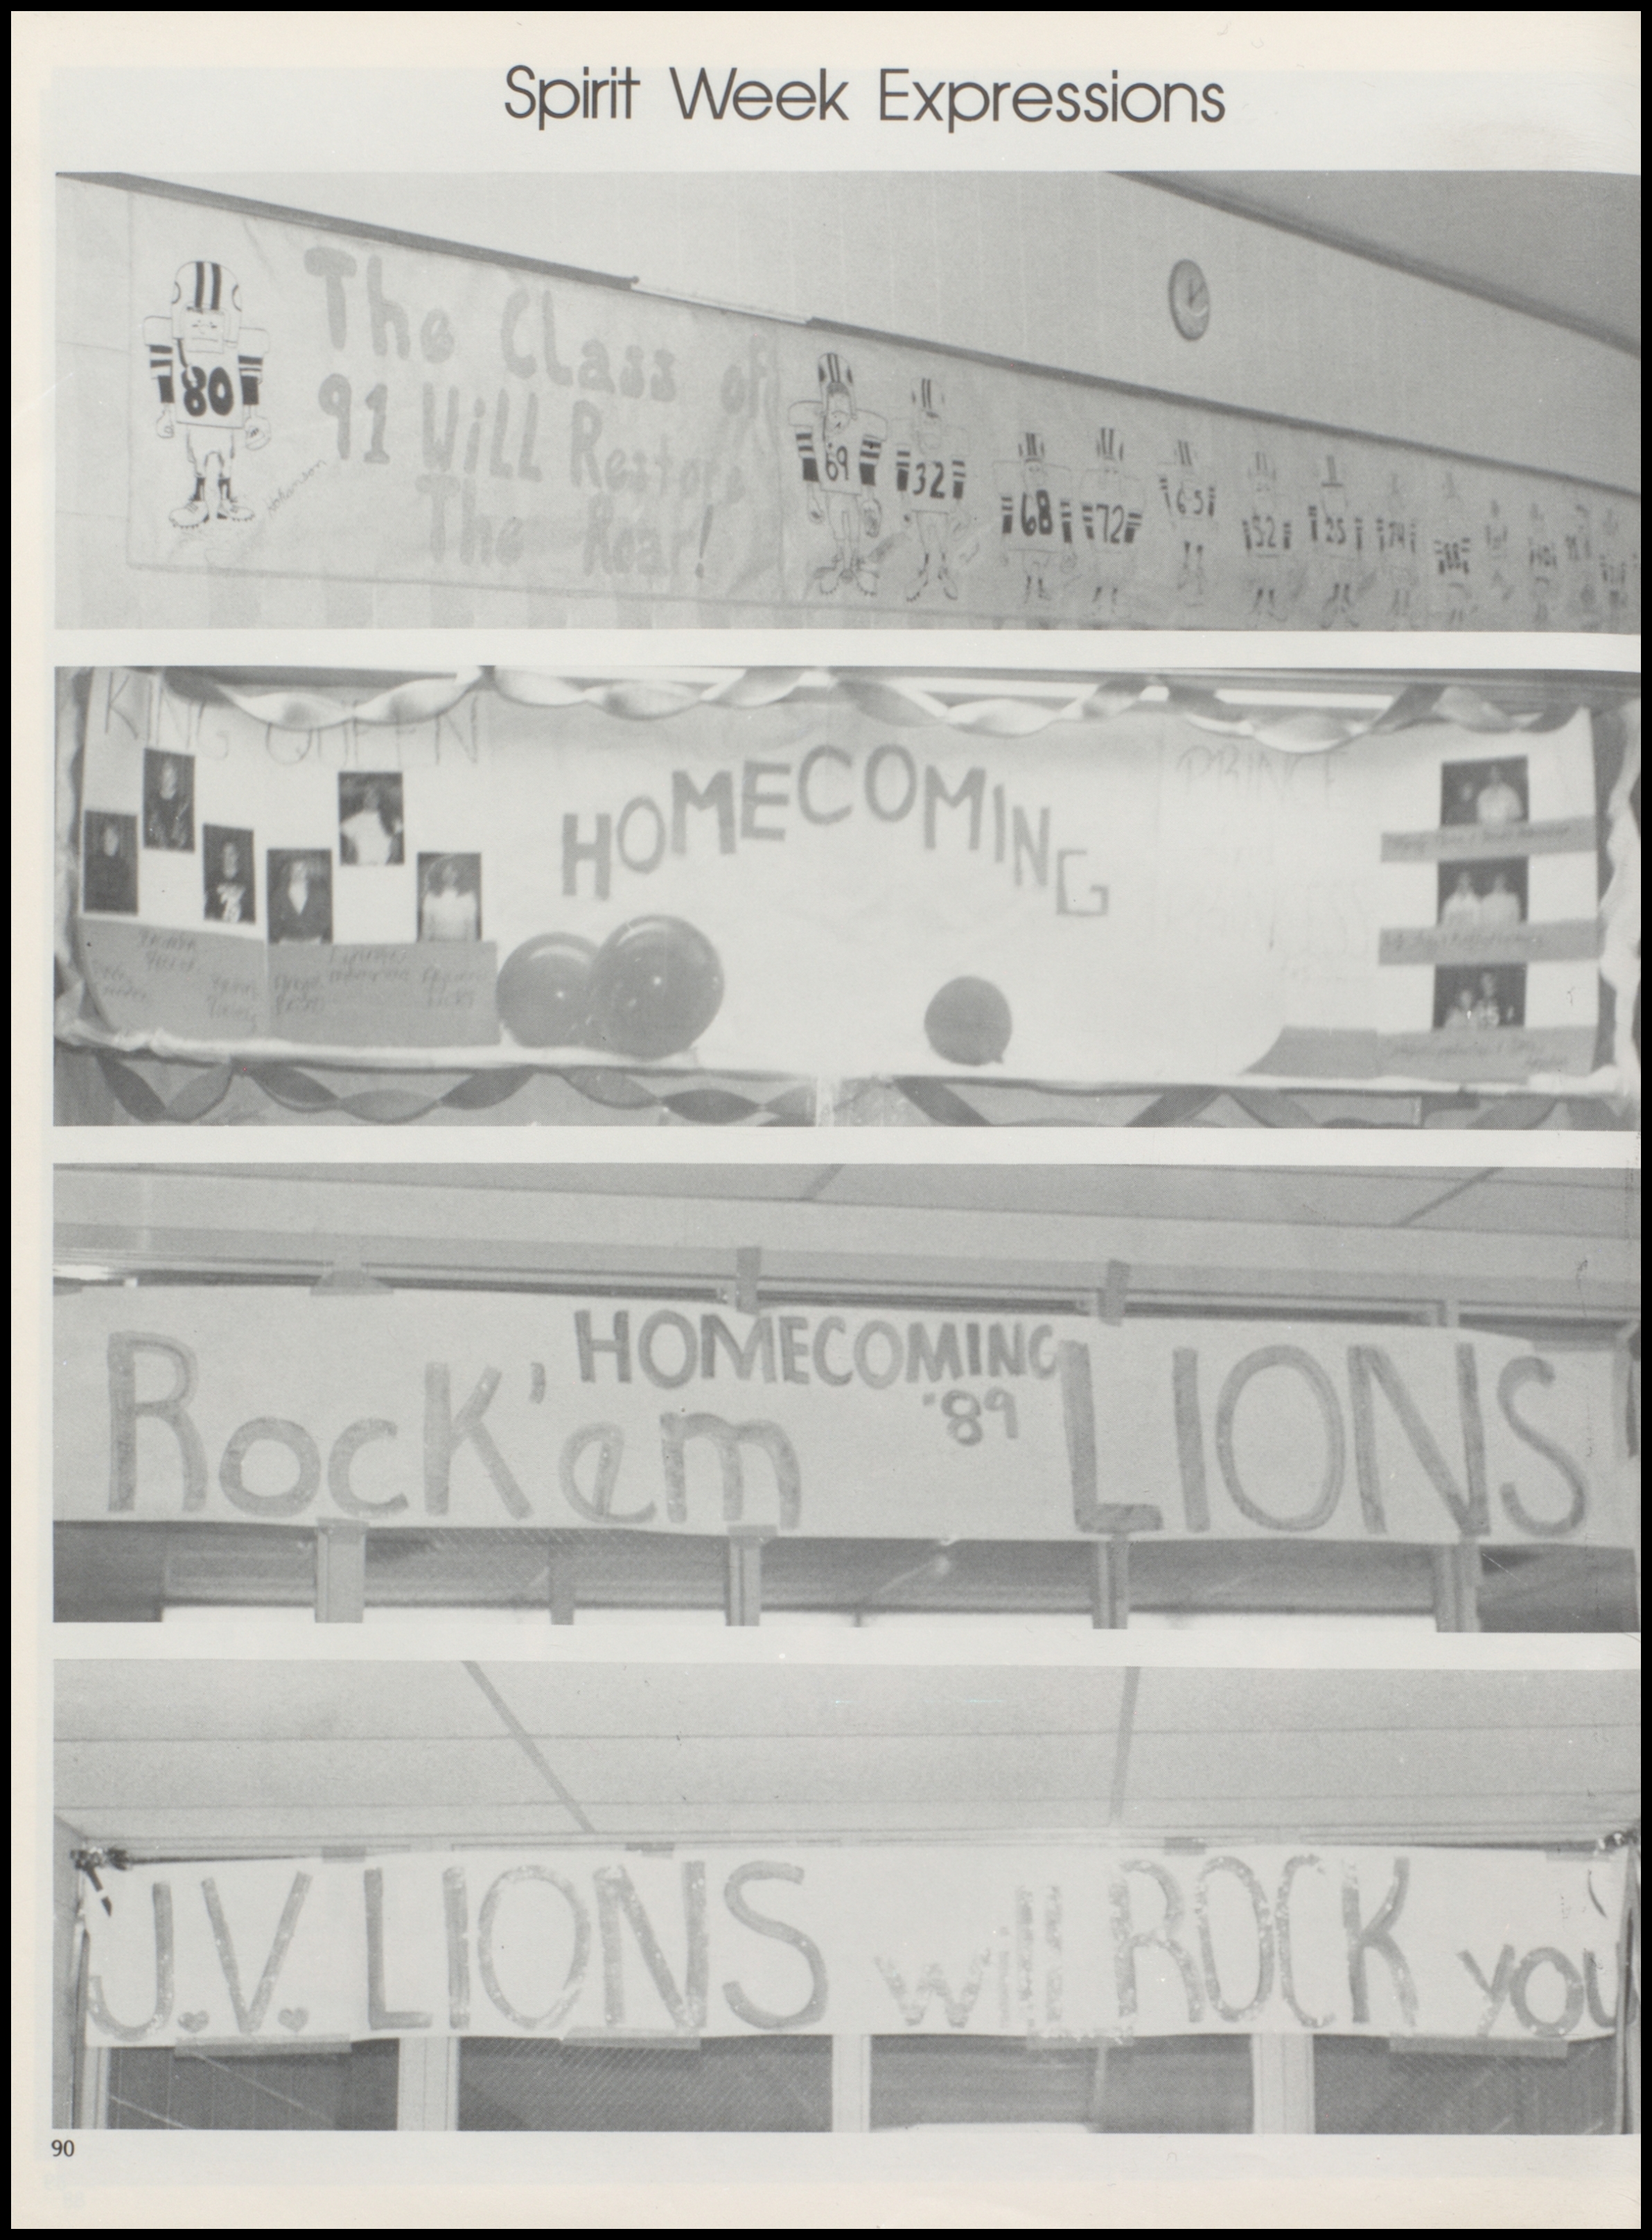 Spirit Week Expressions
80
The CLass of
91 Will Restore
The Roar!
Johanson
69
32
68
72
65
52
25
74
KING QUEEN
HOMECOMING
PRINCE
HOMECOMING
'89
Rock'em LIONS
J.V. LIONS will ROCK you
90